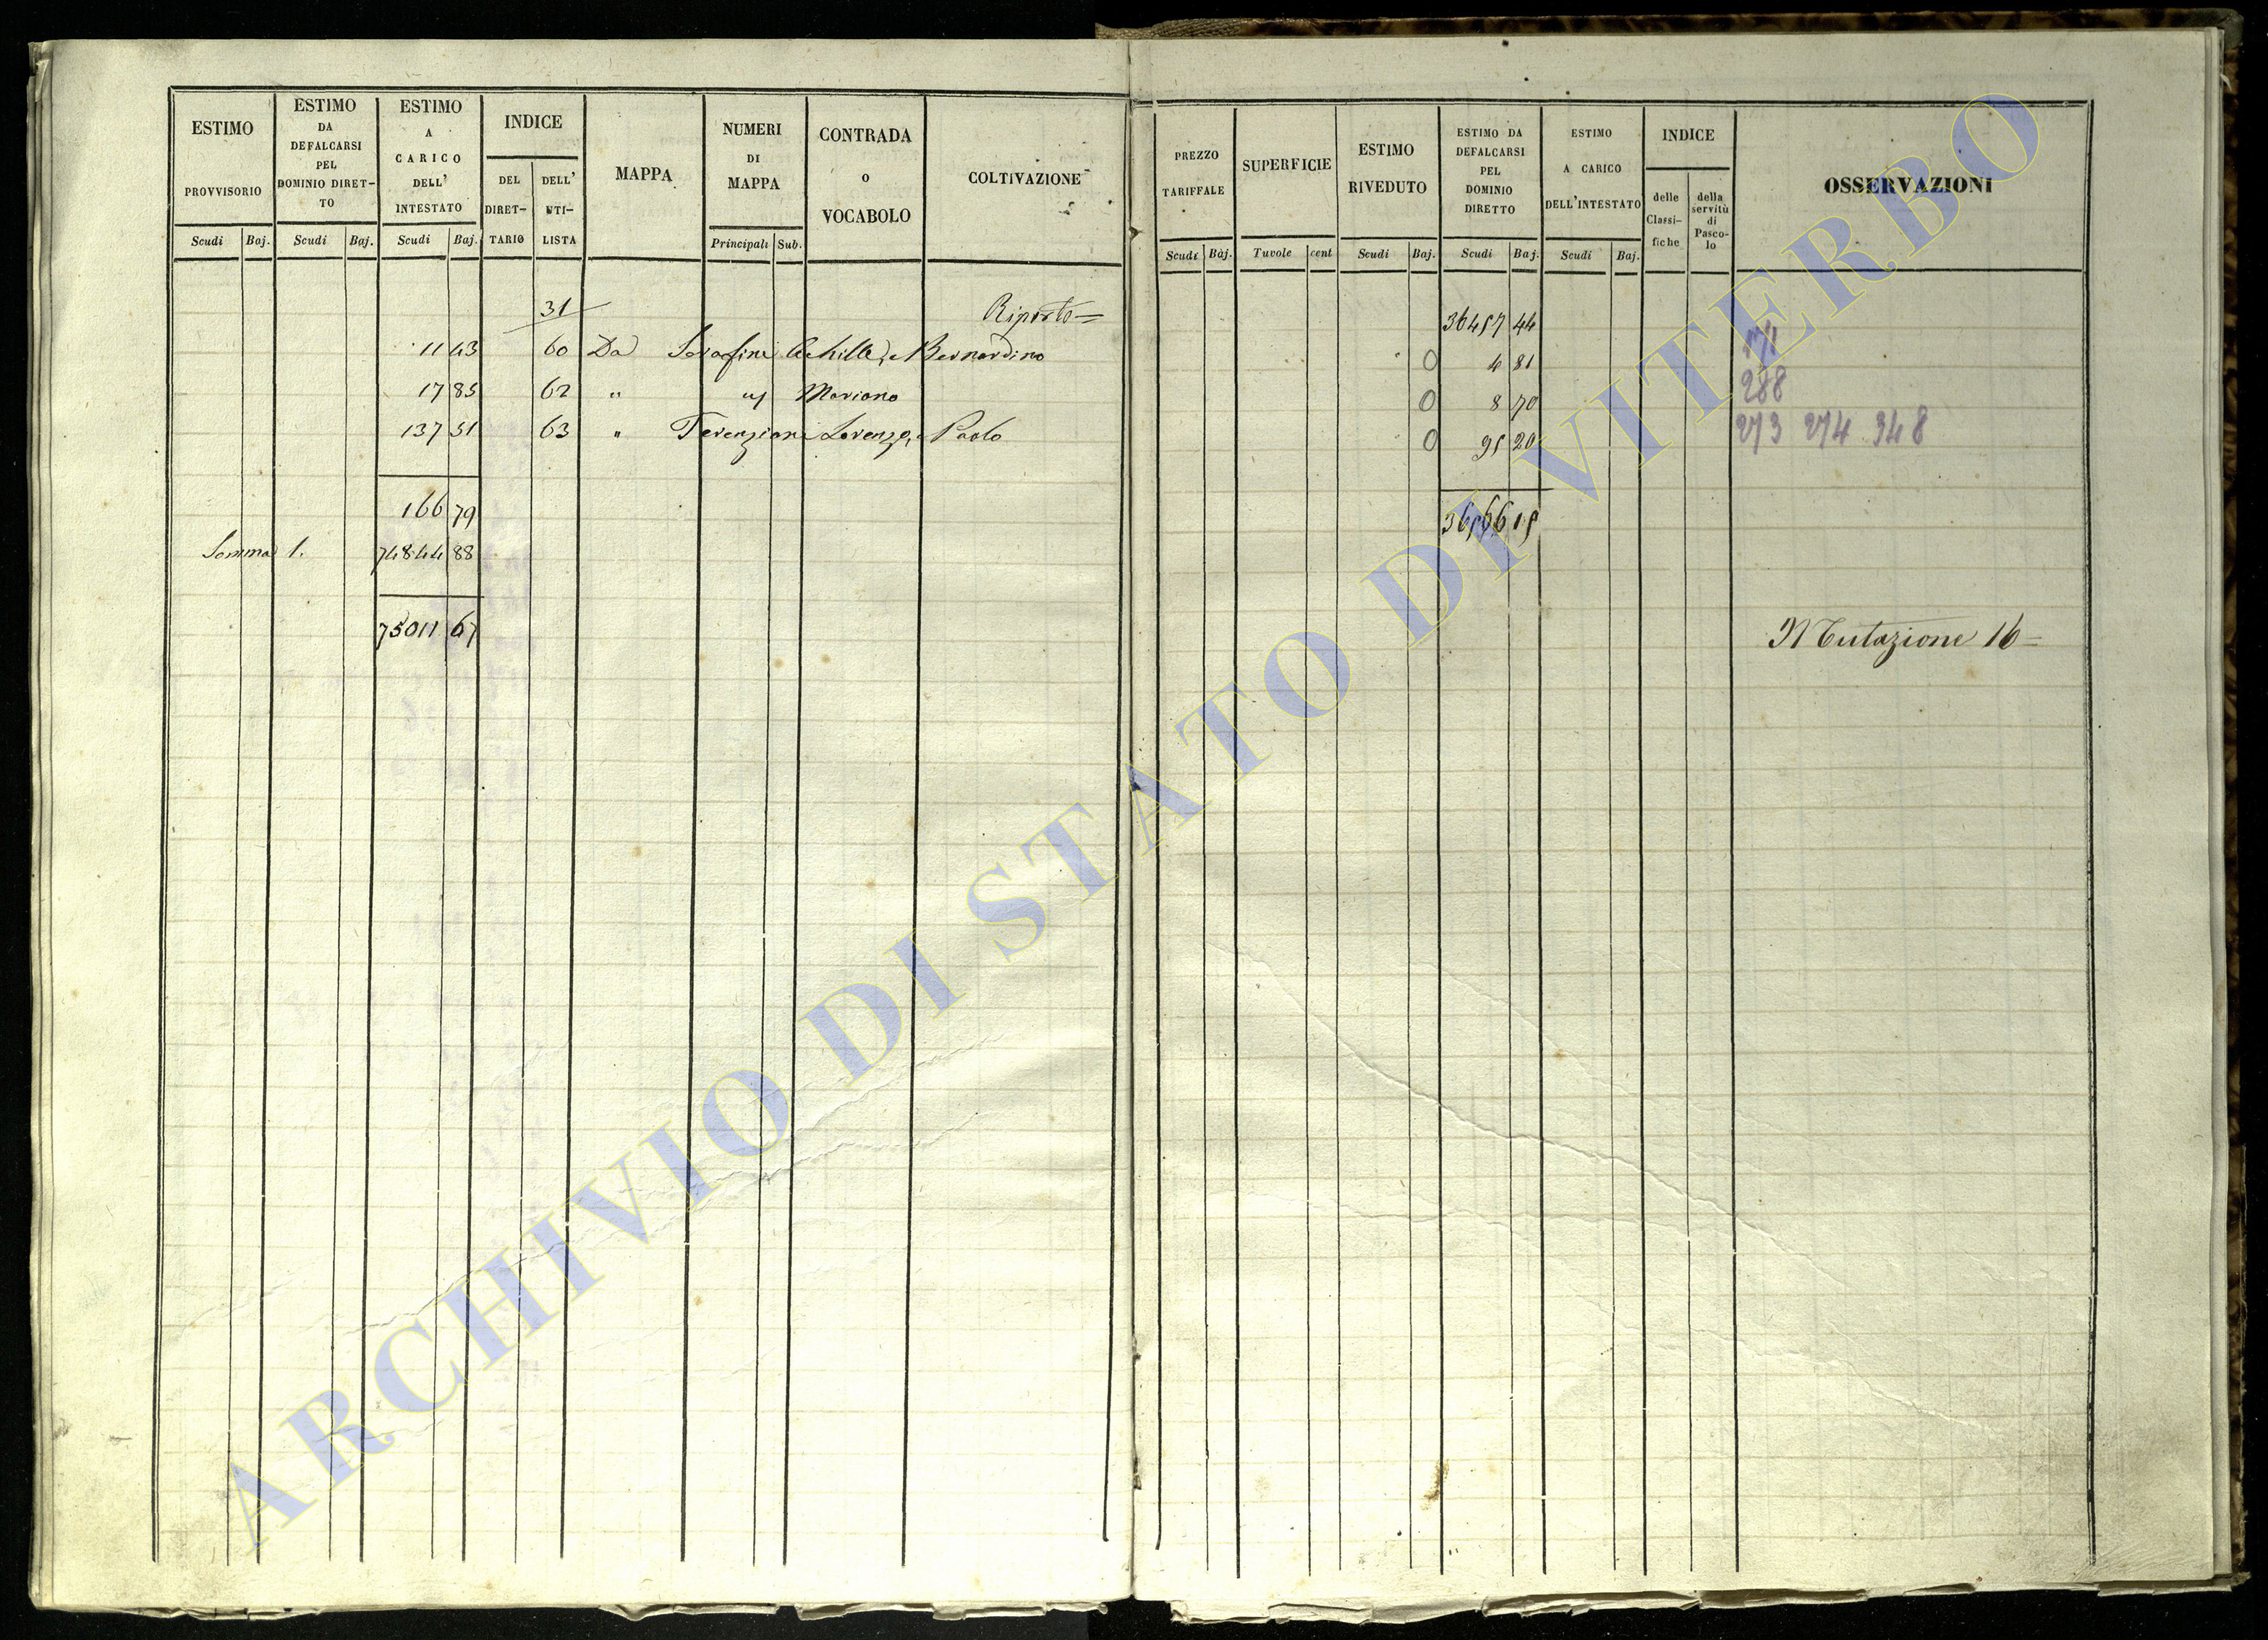 ESTIMO PROVVISORIO
Scudi Baj.
ESTIMO DA DEFALCARSI PEL DOMINIO DIRET-TO
Scudi Baj.
ESTIMO A CARICO DELL' INTESTATO
Scudi Baj.
INDICE
DEL DIRET-TARIO
DELL' UTI-LISTA
MAPPA
NUMERI DI MAPPA
Principali Sub.
CONTRADA o VOCABOLO
COLTIVAZIONE
31 Riporto=
11 43 60 Da Serafini Achille, e Bernardino
17 85 62 " " Mariano
137 51 63 " Terenziani Lorenzo, e Paolo
166 79
Somma 1. 74844 88
75011 67
PREZZO TARIFFALE
Scudi Baj.
SUPERFICIE
Tavole cent
ESTIMO RIVEDUTO
Scudi Baj.
ESTIMO DA DEFALCARSI PEL DOMINIO DIRETTO
Scudi Baj.
ESTIMO A CARICO DELL'INTESTATO
Scudi Baj.
INDICE
delle Classi-fiche
della servitù di Pasco-lo
OSSERVAZIONI
36457 44
0 4 81 171
0 8 70 288
0 95 20 273 274 348
36566 15
Mutazione 16=
ARCHIVIO DI STATO DI VITERBO